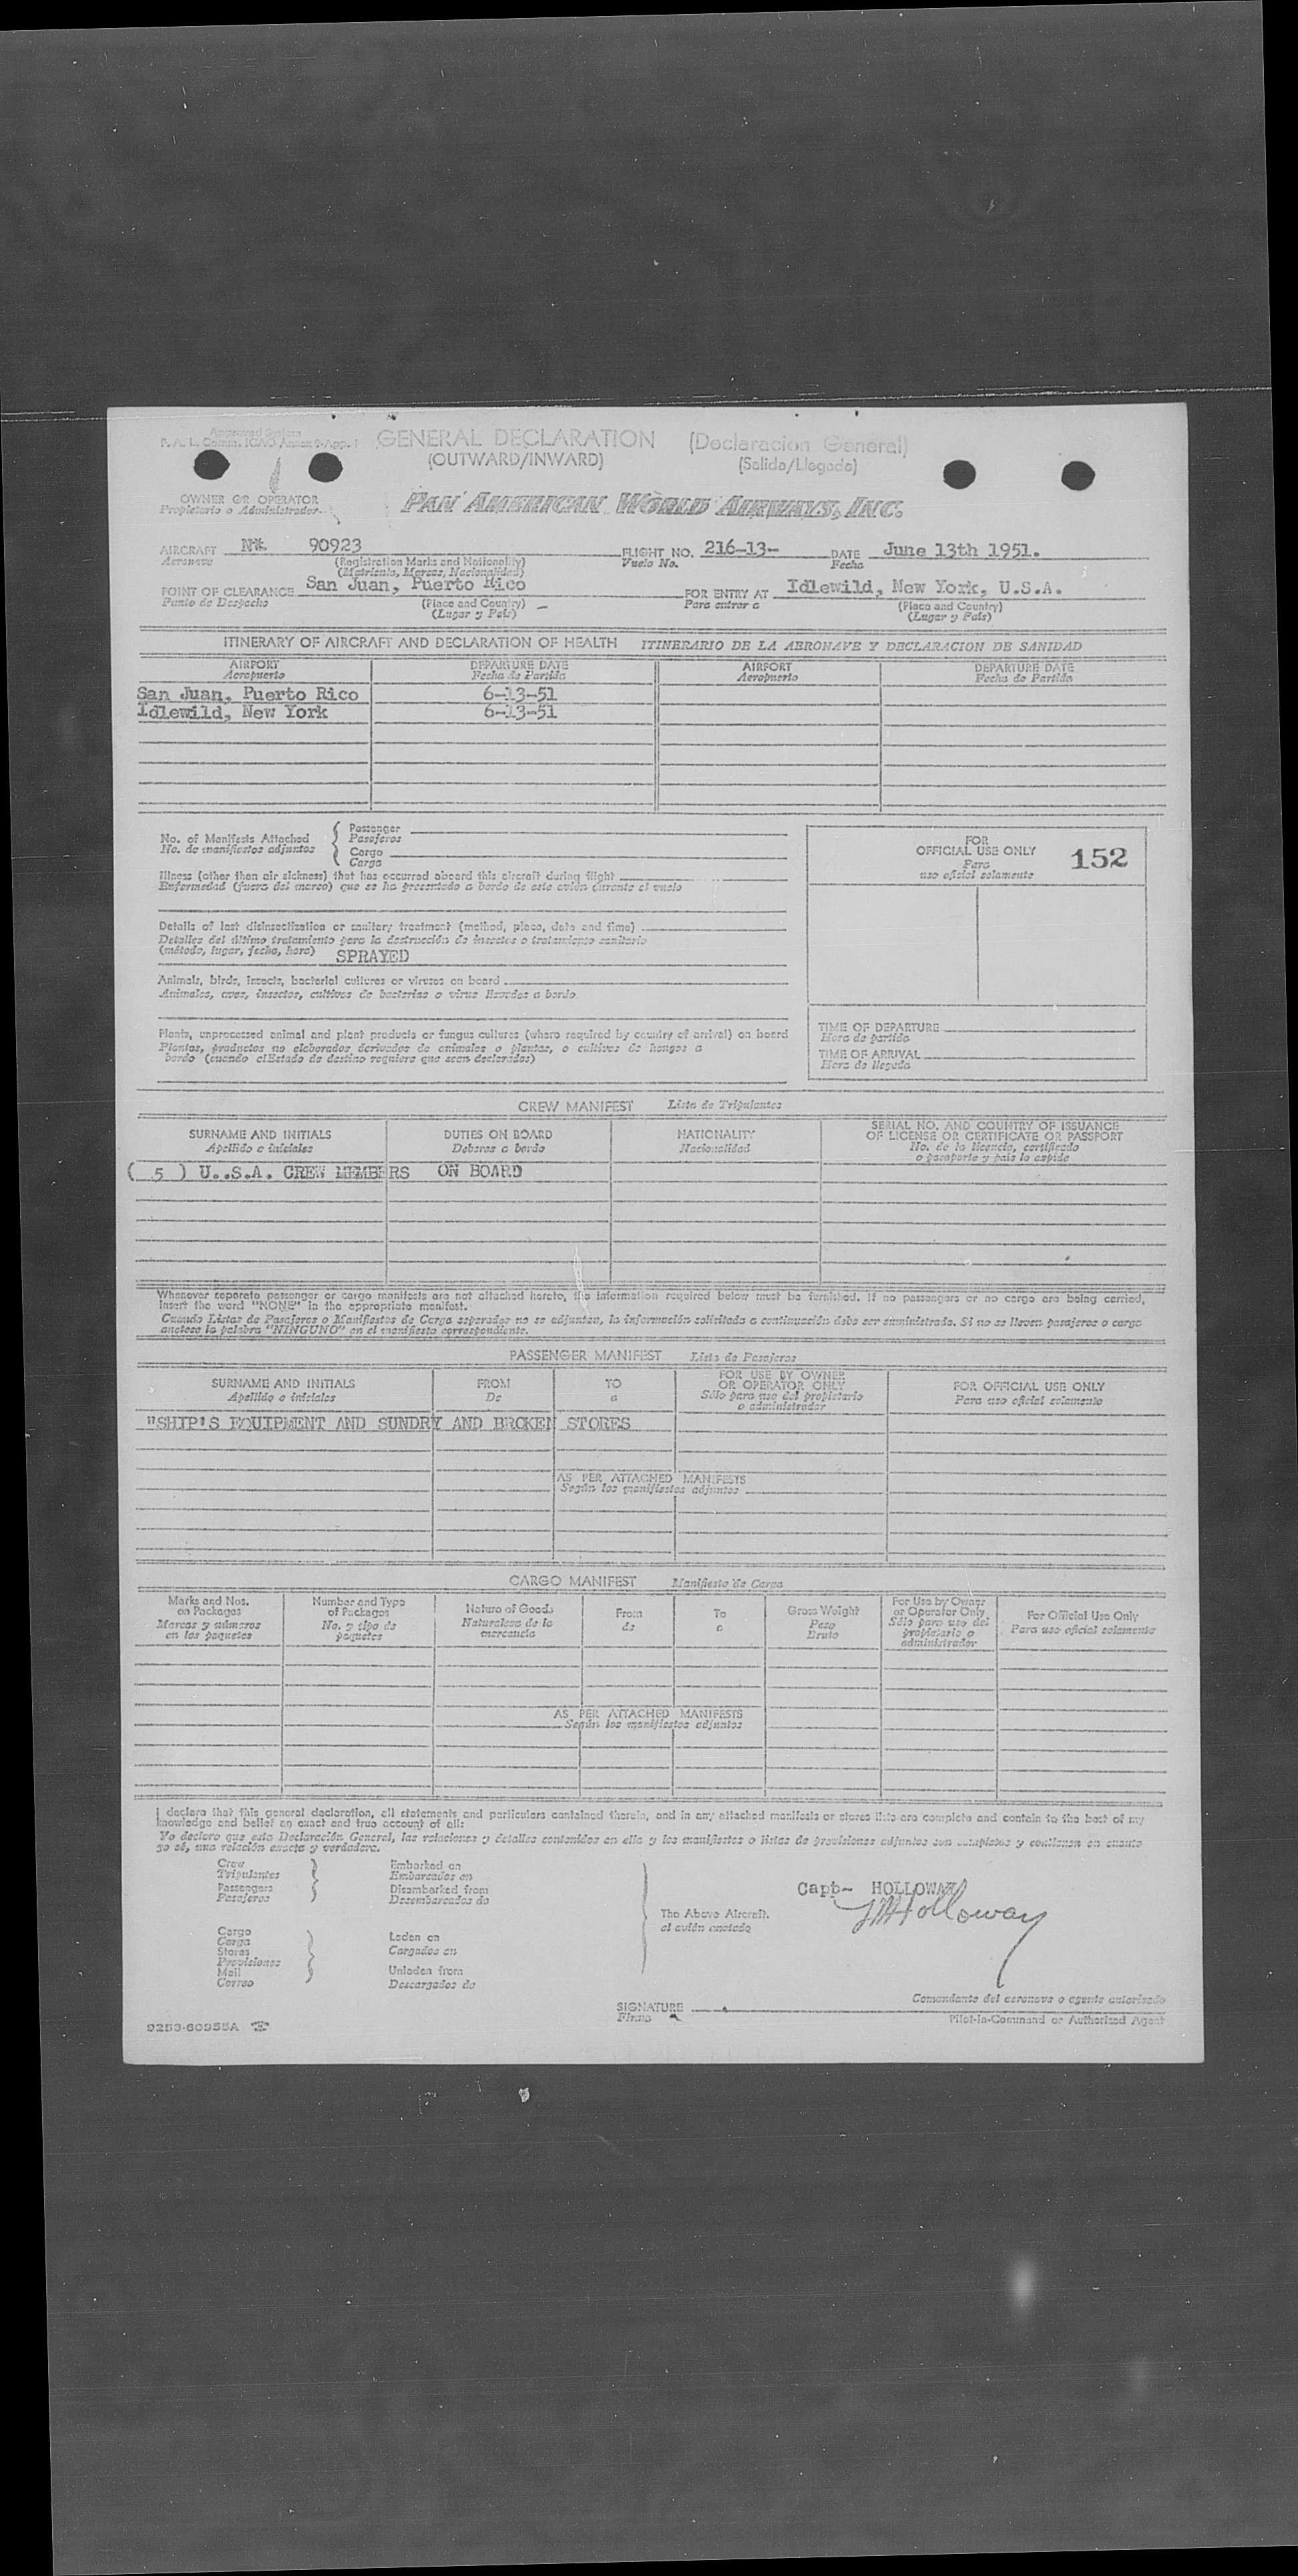 Approved System
F. A. L. Comm. ICAO Annex 9-App. 1
GENERAL DECLARATION (Declaracion General)
(OUTWARD/INWARD) (Salida/Llegada)
OWNER OR OPERATOR
Propietario o Administrador
PAN AMERICAN WORLD AIRWAYS, INC.
AIRCRAFT 90923 FLIGHT NO. 216-13- DATE June 13th 1951.
Aeronave (Registration Marks and Nationality) Vuelo No. Fecha
(Matricula, Marcas, Nacionalidad)
POINT OF CLEARANCE San Juan, Puerto Rico FOR ENTRY AT Idlewild, New York, U.S.A.
Punto de Despacho (Place and Country) Para entrar a (Place and Country)
(Lugar y País) (Lugar y País)
ITINERARY OF AIRCRAFT AND DECLARATION OF HEALTH ITINERARIO DE LA AERONAVE Y DECLARACION DE SANIDAD
AIRPORT DEPARTURE DATE AIRPORT DEPARTURE DATE
Aeropuerto Fecha de Partida Aeropuerto Fecha de Partida
San Juan, Puerto Rico 6-13-51
Idlewild, New York 6-13-51
No. of Manifests Attached Passenger
No. de manifiestos adjuntos Pasajeros
Cargo
Carga
FOR
OFFICIAL USE ONLY 152
Para
uso oficial solamente
Illness (other than air sickness) that has occurred aboard this aircraft during flight
Enfermedad (fuera del mareo) que se ha presentado a bordo de este avión durante el vuelo
Details of last disinsectization or sanitary treatment (method, place, date and time)
Detalles del último tratamiento para la destrucción de insectos o tratamiento sanitario
(método, lugar, fecha, hora) SPRAYED
Animals, birds, insects, bacterial cultures or viruses on board
Animales, aves, insectos, cultivos de bacterias o virus llevados a bordo
Plants, unprocessed animal and plant products or fungus cultures (where required by country of arrival) on board
Plantas, productos no elaborados derivados de animales o plantas, o cultivos de hongos a
bordo (cuando el Estado de destino requiera que sean declarados)
TIME OF DEPARTURE
Hora de partida
TIME OF ARRIVAL
Hora de llegada
CREW MANIFEST Lista de Tripulantes
SURNAME AND INITIALS DUTIES ON BOARD NATIONALITY SERIAL NO. AND COUNTRY OF ISSUANCE
Apellido e iniciales Deberes a bordo Nacionalidad OF LICENSE OR CERTIFICATE OR PASSPORT
No. de la licencia, certificado
o pasaporte y país lo expide
( 5 ) U..S.A. CREW MEMBERS ON BOARD
Whenever separate passenger or cargo manifests are not attached hereto, the information required below must be furnished. If no passengers or no cargo are being carried,
insert the word "NONE" in the appropriate manifest.
Cuando Listas de Pasajeros o Manifiestos de Carga separados no se adjunten, la información solicitada a continuación debe ser suministrada. Si no se llevan pasajeros o carga
anotese la palabra "NINGUNO" en el manifiesto correspondiente.
PASSENGER MANIFEST Lista de Pasajeros
SURNAME AND INITIALS FROM TO FOR USE BY OWNER OR OPERATOR ONLY FOR OFFICIAL USE ONLY
Apellido e iniciales De a Sólo para uso del propietario o administrador Para uso oficial solamente
"SHIP'S EQUIPMENT AND SUNDRY AND BROKEN STORES
AS PER ATTACHED MANIFESTS
Según los manifiestos adjuntos
CARGO MANIFEST Manifiesto de Carga
Marks and Nos. on Packages Number and Type of Packages Nature of Goods From To Gross Weight For Use by Owner or Operator Only For Official Use Only
Marcas y números en los paquetes No. y tipo de paquetes Naturaleza de la mercancía de a Peso Bruto Sólo para uso del propietario o administrador Para uso oficial solamente
AS PER ATTACHED MANIFESTS
Según los manifiestos adjuntos
I declare that this general declaration, all statements and particulars contained therein, and in any attached manifests or stores lists are complete and contain to the best of my
knowledge and belief an exact and true account of all:
Yo declaro que esta Declaración General, las relaciones y detalles contenidos en ella y los manifiestos o listas de provisiones adjuntos son completos y contienen en cuanto
yo sé, una relación exacta y verdadera.
Crew Embarked on
Tripulantes Embarcados en
Passengers Disembarked from
Pasajeros Desembarcados de
Capt- HOLLOWAY
The Above Aircraft.
el avión anotado
Holloway
Cargo
Carga Laden on
Stores Cargados en
Provisiones
Mail Unladen from
Correo Descargados de
Comandante del aeronave o agente autorizado
SIGNATURE
Firma
Pilot-in-Command or Authorized Agent
9253-60955A